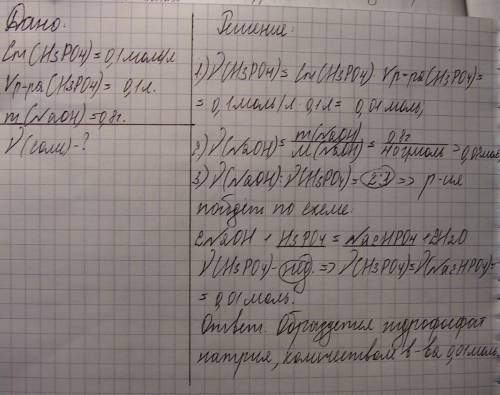 Дано:
Cm(H3PO4)=0,1моль/л
Vр-ра(H3PO4)= 0,1л.
m(NaOH)=0,8г.
ν(соли)-?
Решение:
1) ν(H3PO4)= Cm(H3PO4)·Vр-ра(H3PO4)=
= 0,1моль/л·0,1л= 0,01моль,
2) ν(NaOH)= m(NaOH)/M(NaOH) = 0,8г/40г/моль = 0,02моль
3) ν(NaOH):ν(H3PO4)= 2:1 => р-ия
пойдет по схеме:
2NaOH + H3PO4 = Na2HPO4 + 2H2O
ν(H3PO4)-нед. => ν(H3PO4)=ν(Na2HPO4)=
= 0,01моль.
Ответ: Образуется гидрофосфат
натрия, количеством в-ва 0,01моль.